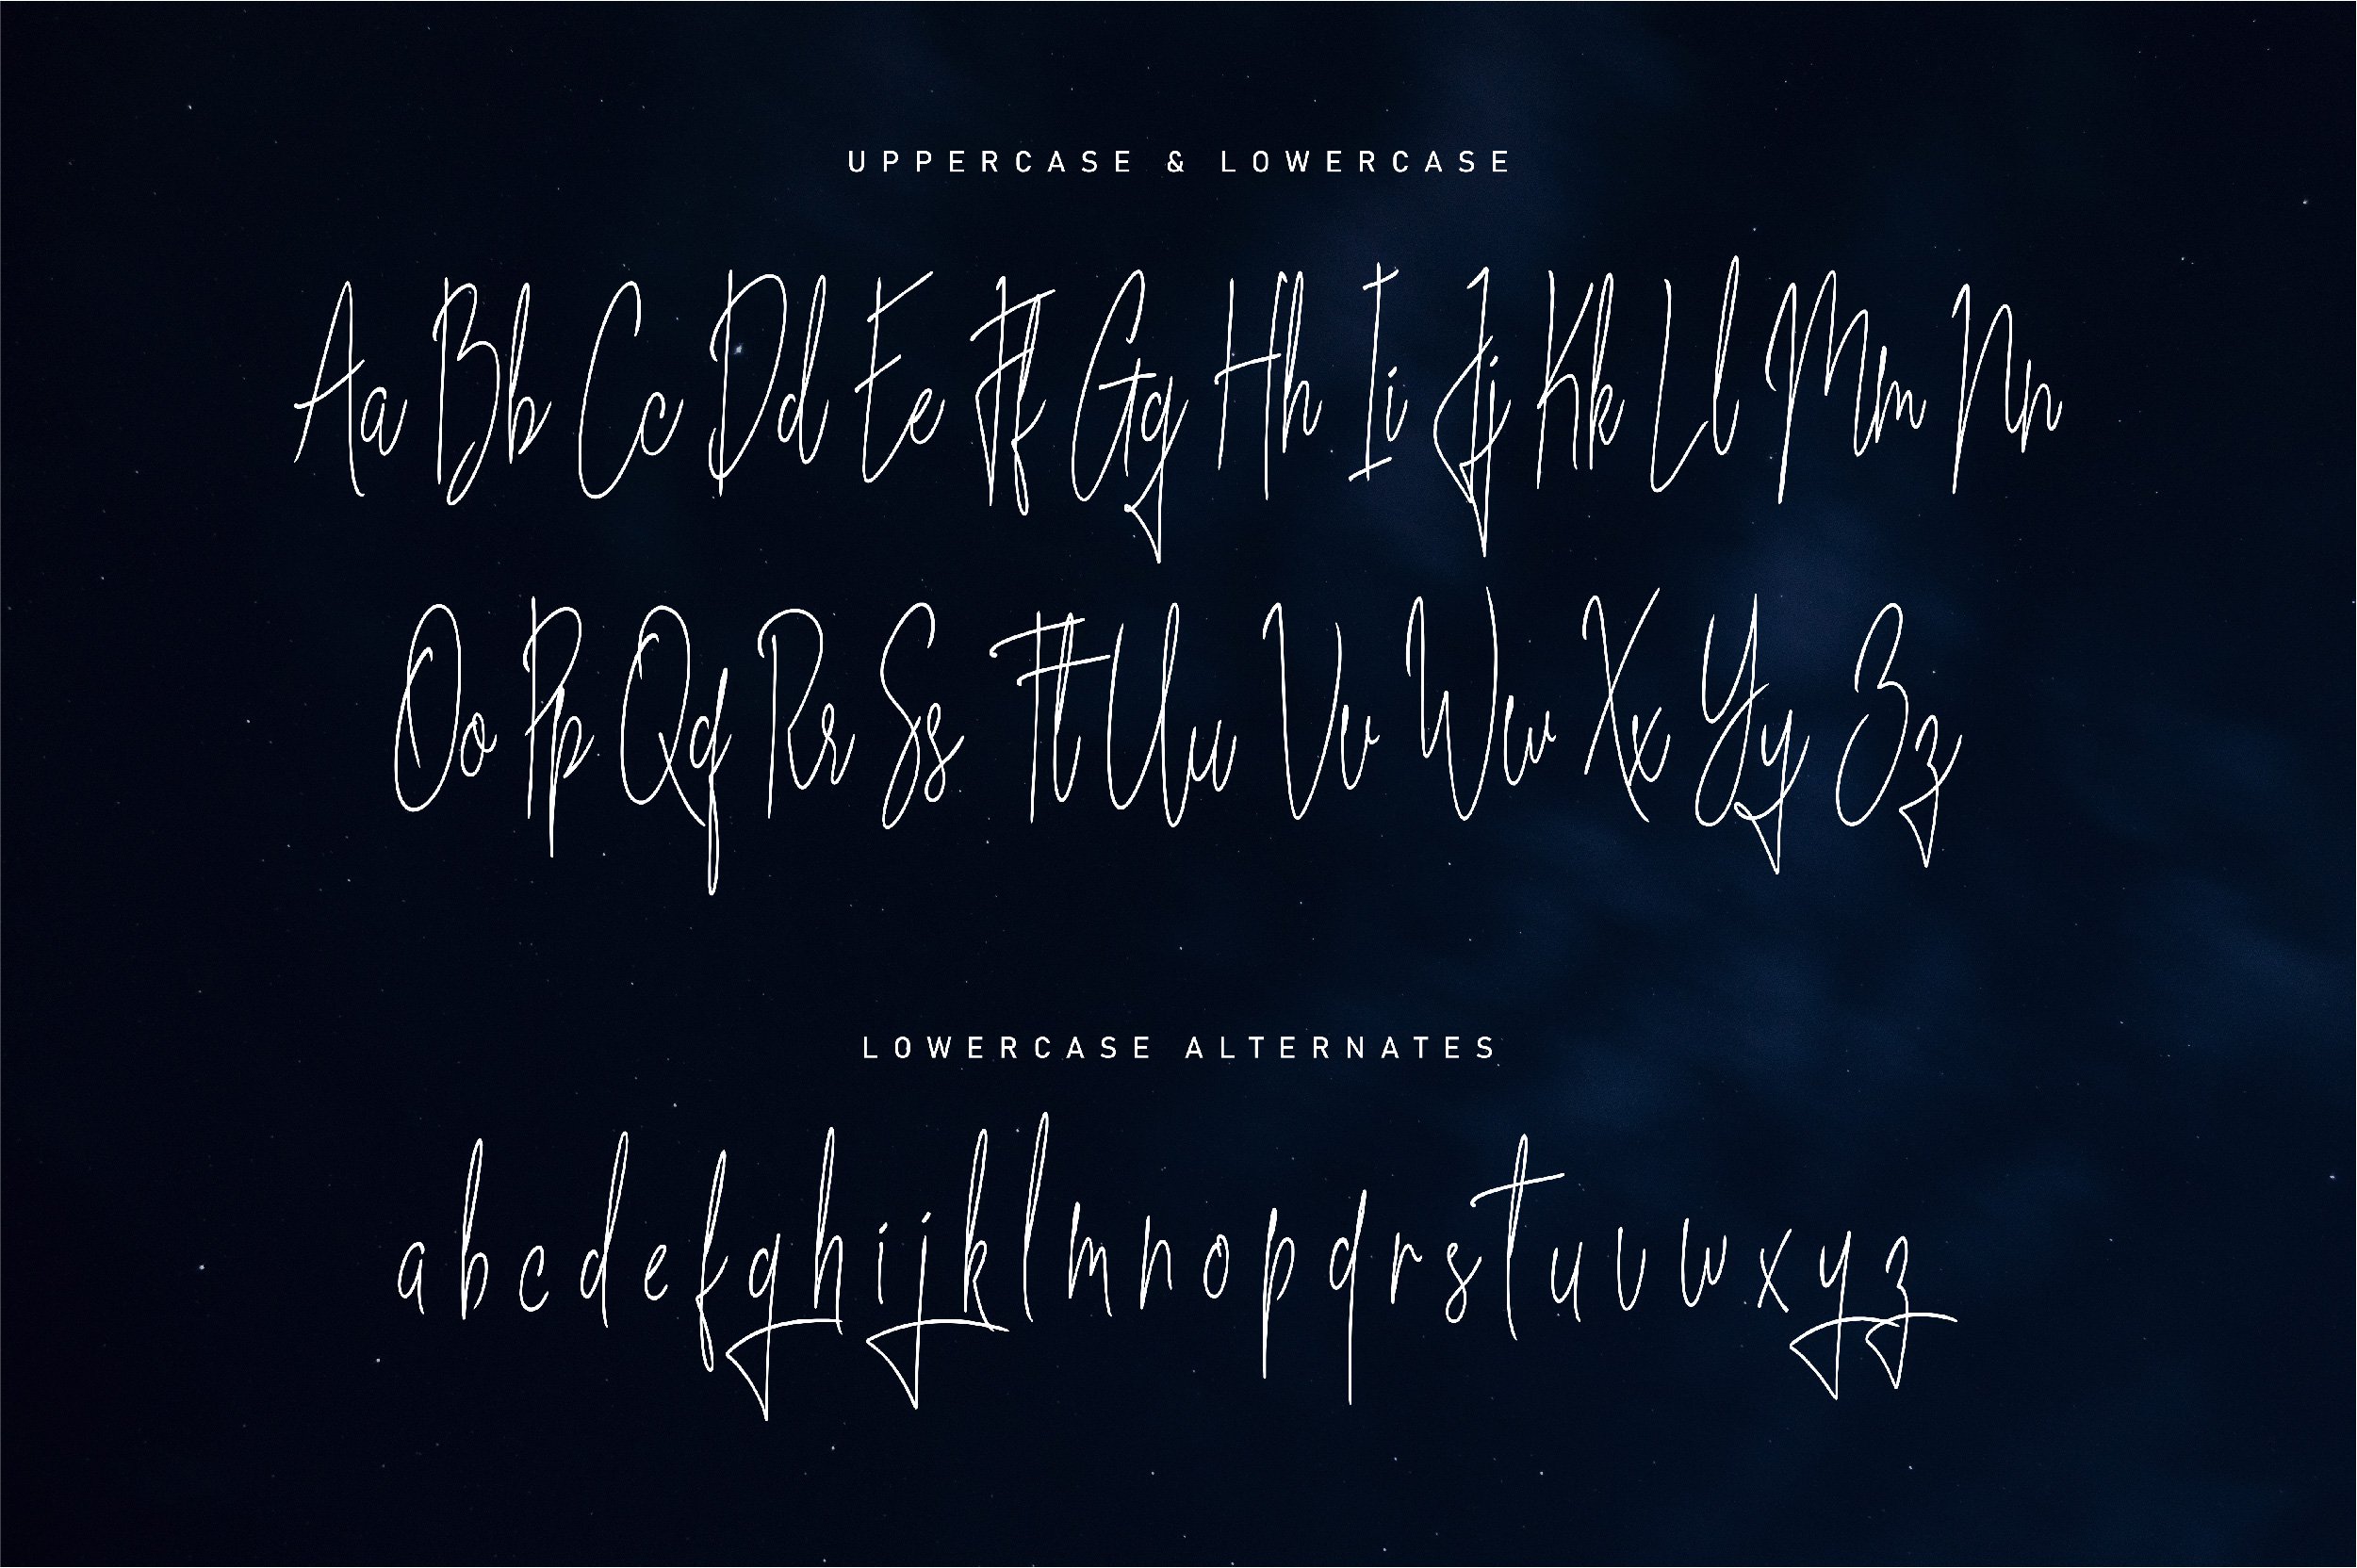 UPPERCASE & LOWERCASE
Aa Bb Cc Dd Ee Ff Gg Hh Ii Jj Kk Ll Mm Nn
Oo Pp Qq Rr Ss Tt Uu Vv Ww Xx Yy Zz
LOWERCASE ALTERNATES
a b c d e f g h i j k l m n o p q r s t u v w x y z